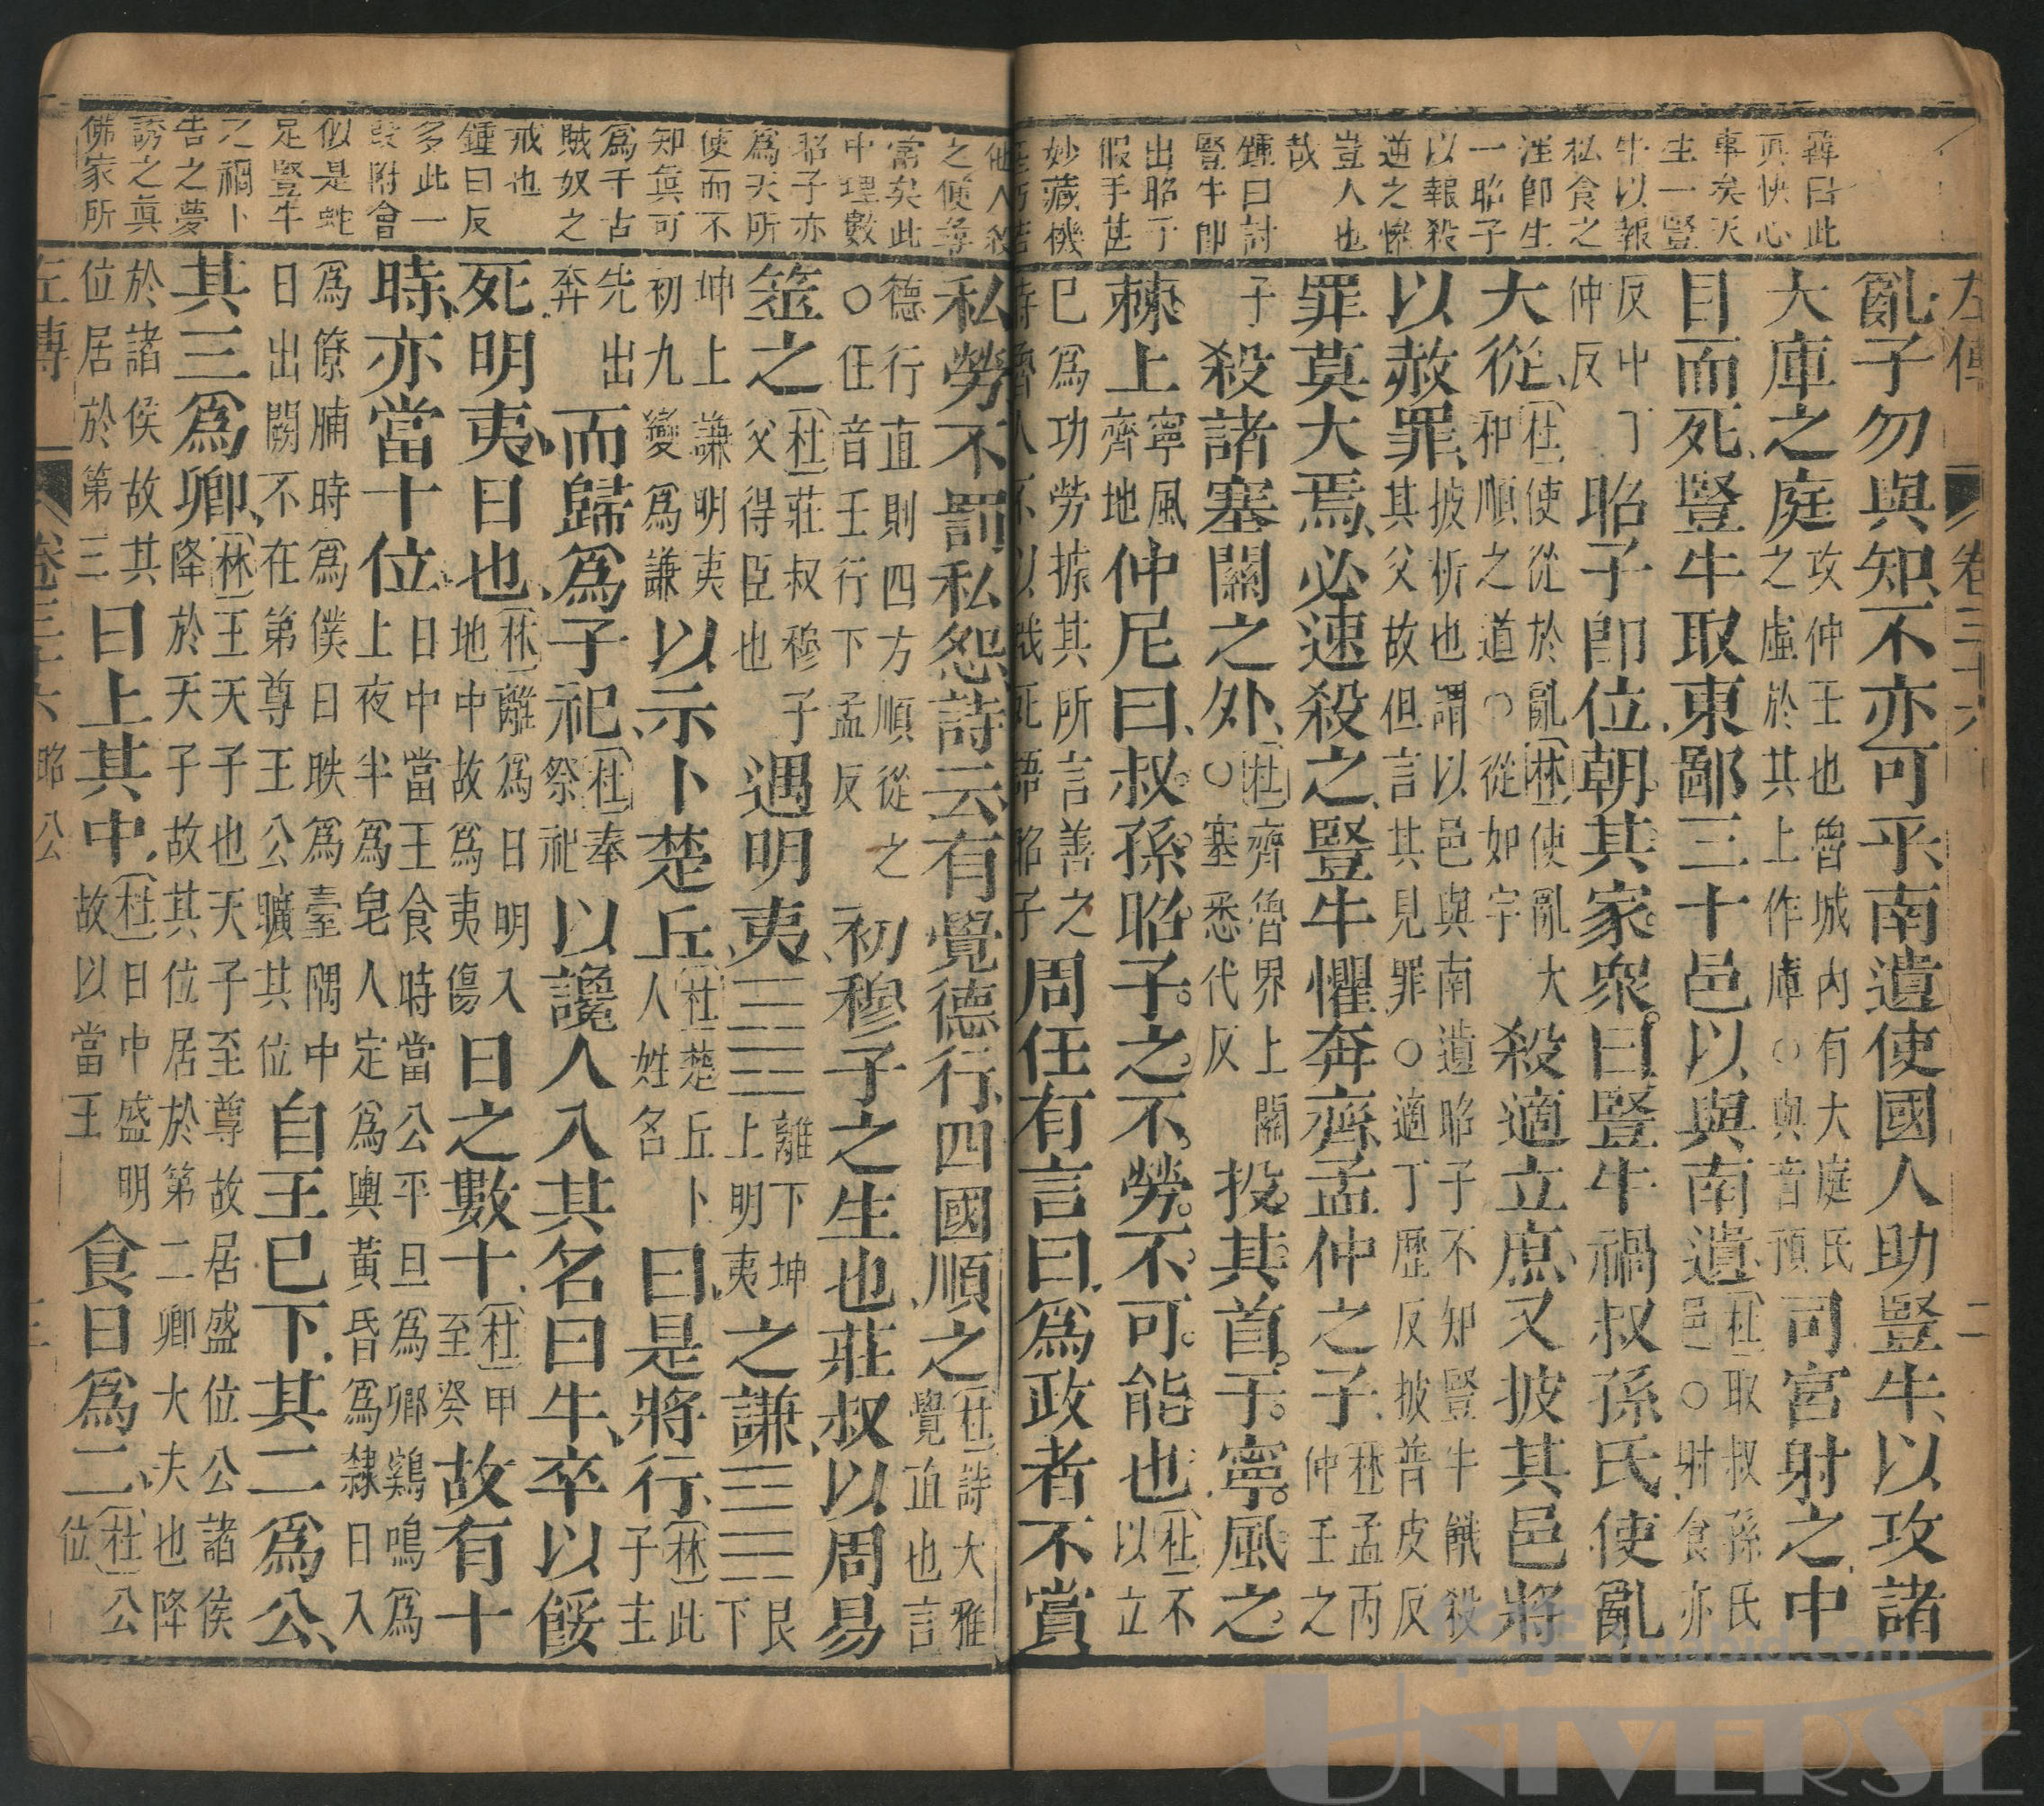 韓曰此
真快心
事矣天
生一豎
牛以報
私食之
淫卽生
一昭子
以報殺
逆之慘
豈人也
哉
鍾曰討
豎牛卽
出昭子
假手甚
妙藏機
左傳 卷三十六 二
亂子勿與知不亦可乎南遺使國人助豎牛以攻諸
大庫之庭攻仲壬也魯城內有大庭氏之虛於其上作庫○與音預司宮射之中
目而死豎牛取東鄙三十邑以與南遺(杜)取叔孫氏邑○射食亦
反中丁仲反昭子卽位朝其家眾曰豎牛禍叔孫氏使亂
大從(杜)使從於亂(林)使亂大和順之道○從如字殺適立庶又披其邑將
以赦罪披析也謂以邑與南遺昭子不知豎牛餓殺其父故但言其見罪○適丁歷反披普皮反
罪莫大焉必速殺之豎牛懼奔齊孟仲之子林孟丙仲壬之
子殺諸塞關之外(杜)齊魯界上關○塞悉代反投其首于寧風之
棘上寧風齊地仲尼曰叔孫昭子之不勞不可能也(杜)不以立
已為功勞據其所言善之時魯人不以餓死語昭子周任有言曰爲政者不賞
他人殺
之便尋
常矣此
中理數
昭子亦
為天所
使而不
知真可
為千古
賊奴之
戒也
鍾曰反
多此一
段附會
似是蛇
足豎牛
之禍卜
告之夢
誘之真
佛家所
私勞不罰私怨詩云有覺德行四國順之(杜)詩大雅覺直也言
德行直則四方順從之○任音壬行下孟反初穆子之生也莊叔以周易
筮之(杜)莊叔穆子父得臣也遇明夷䷣離下坤上明夷之謙䷎艮下
坤上謙明夷初九變為謙以示卜楚丘(杜)楚丘卜人姓名曰是將行(林)此子主
先出奔而歸爲子祀(杜)奉祭祀以讒人入其名曰牛卒以餒
死明夷日也(林)離為日明入地中故為夷傷日之數十(杜)甲至癸故有十
時亦當十位日中當王食時當公平旦為卿鷄鳴為上夜半為皂人定為輿黃昏為隸日入
為僚晡時為僕日昳為臺隅中日出闕不在第尊王公曠其位自王已下其二爲公
其三爲卿(林)王天子也天子至尊故居盛位公諸侯降於天子故其位居於第二卿大夫也降
於諸侯故其位居於第三日上其中(杜)日中盛明故以當王食日爲二(杜)公位
左傳 卷三十六 昭公 三
UNIVERSE